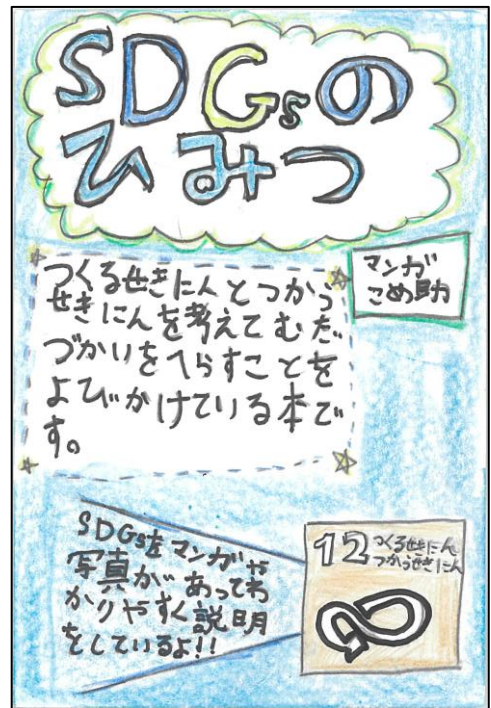 SDGsの
ひみつ
マンガ
こめ助
つくるせきにんとつかう
せきにんを考えてむだ
づかいをへらすことを
よびかけている本で
す。
SDGsをマンガや
写真があってわ
かりやすく説明
をしているよ!!
12 つくるせきにん
つかうせきにん